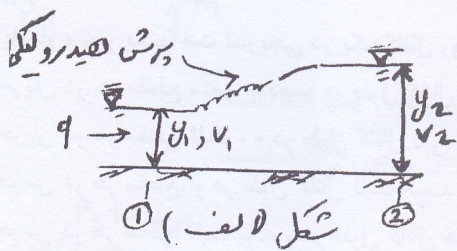 پرش هیدرولیکی
q
y₁, v₁
y₂
v₂
① ②
شکل (الف)